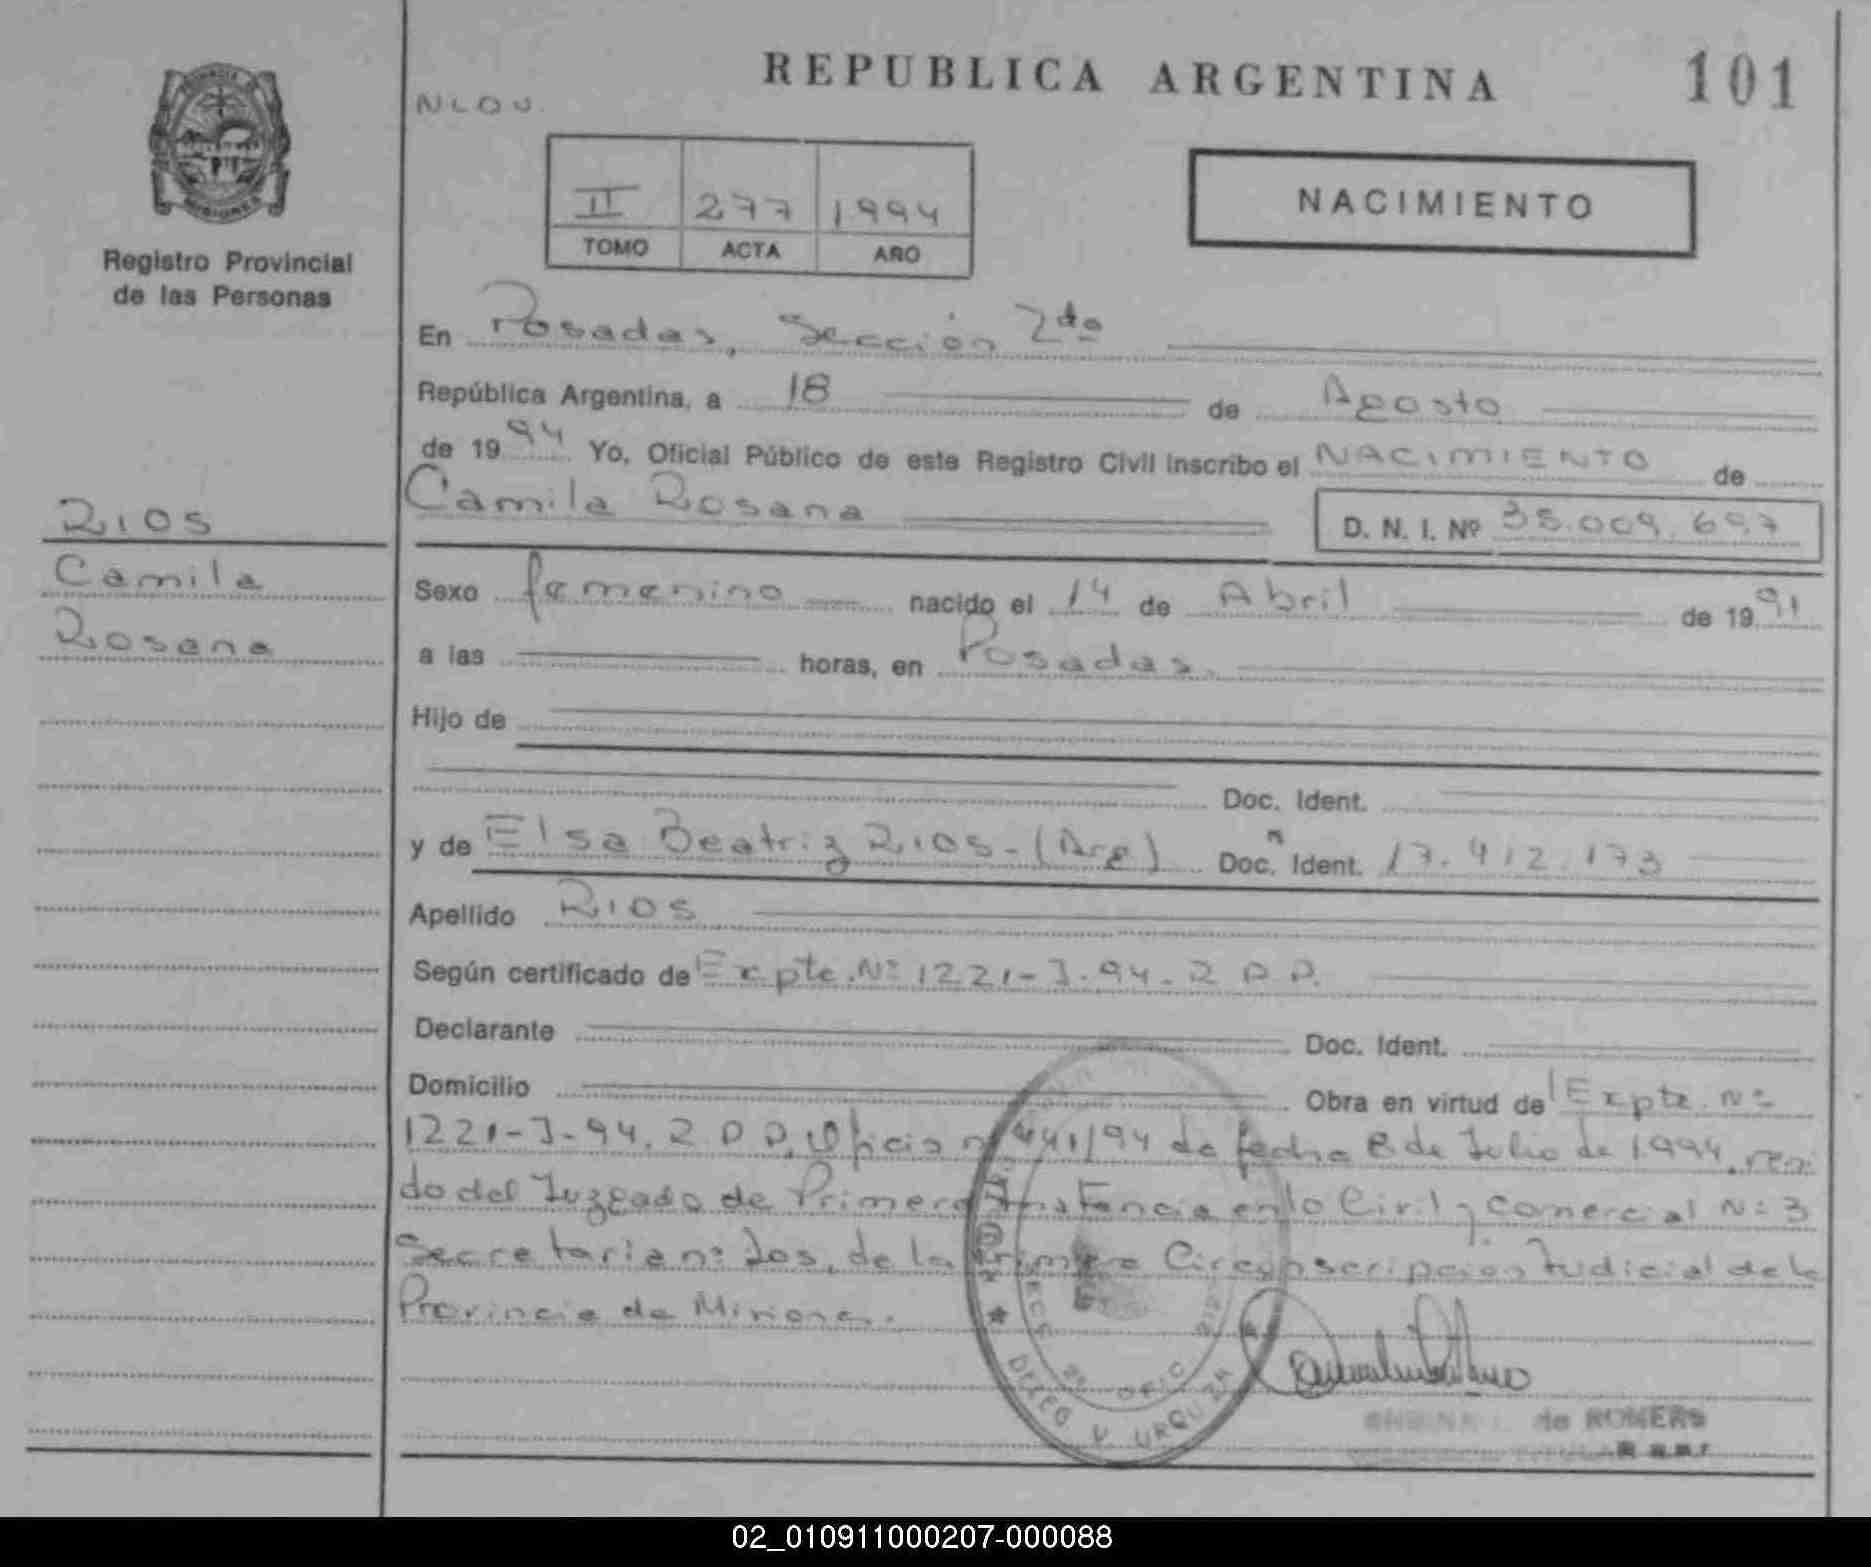 REPUBLICA ARGENTINA
101
II 277 1994
TOMO ACTA AÑO
NACIMIENTO
Registro Provincial
de las Personas
En Posadas, Sección 2da
República Argentina, a 18 de Agosto
de 1994 Yo, Oficial Público de este Registro Civil inscribo el NACIMIENTO de
Camila Rosana D. N. I. Nº 35.009.697
RIOS
Camila
Rosana
Sexo femenino nacido el 14 de Abril de 1991
a las horas, en Posadas.
Hijo de
Doc. Ident.
y de Elsa Beatriz RIOS - (Arg) Doc. Ident. 17.412.173
Apellido RIOS
Según certificado de Expte. Nº 1221-J-94. R.P.P.
Declarante Doc. Ident.
Domicilio Obra en virtud de Expte. Nº
1221-J-94. R.P.P. Oficio nº 441/94 de fecha 8 de Julio de 1994.
do del Juzgado de Primera Instancia en lo Civil y Comercial Nº 3
Secretaria nº dos, de la Primera Circunscripción Judicial de la
Provincia de Misiones.
DELEG V URQUIZA
de ROMERO
02_010911000207-000088